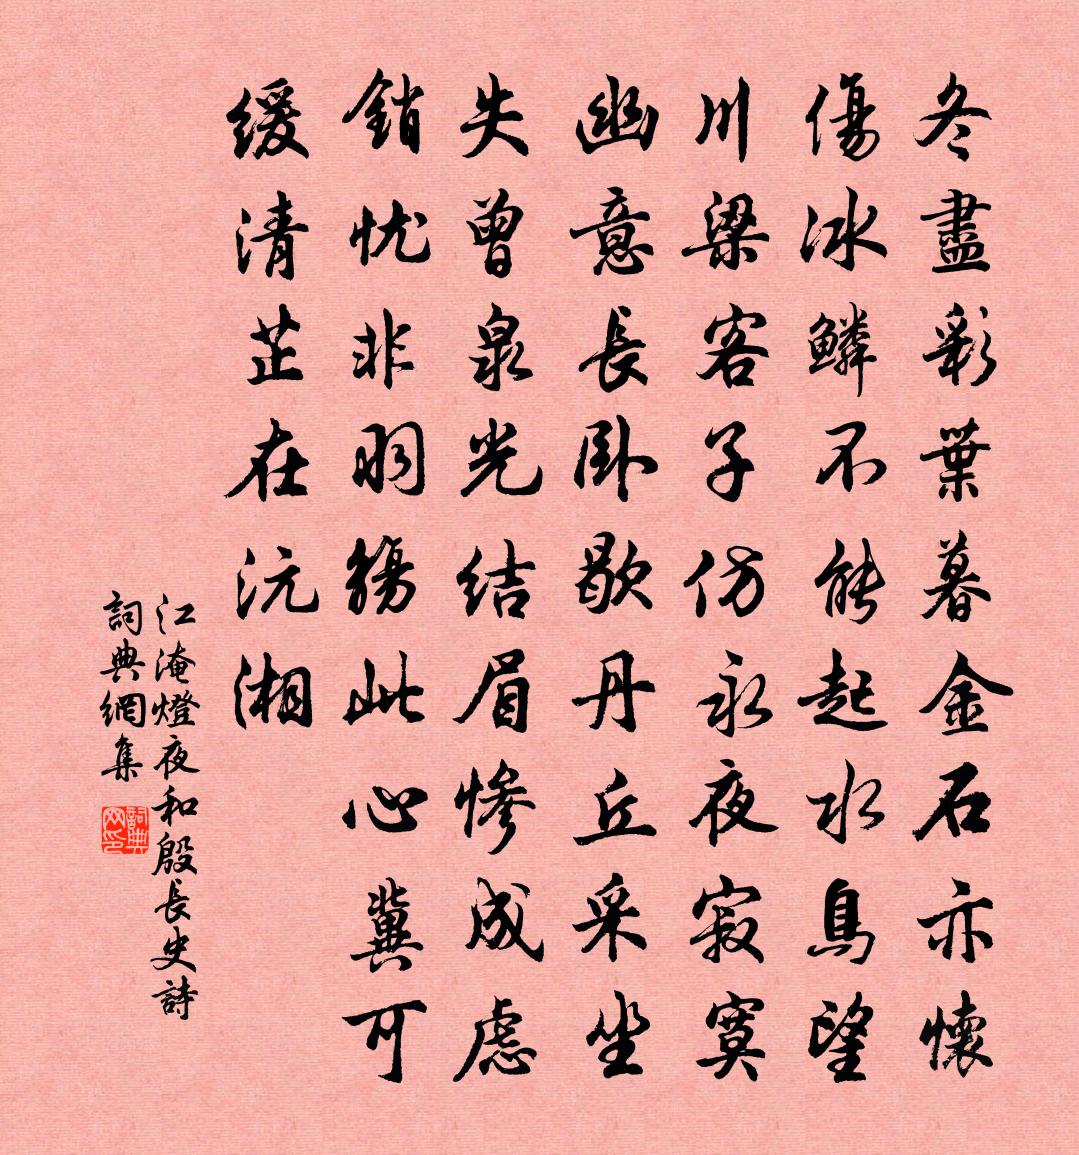 冬盡彩葉暮金石亦懷
傷冰鱗不能起水鳥望
川梁客子仿永夜寂寞
幽意長臥歇丹丘采坐
失曾泉光結眉慘成慮
銷忧非羽觴此心冀可
緩清芷在沅湘
江淹燈夜和殷長史詩
詞典網集
詞典网印